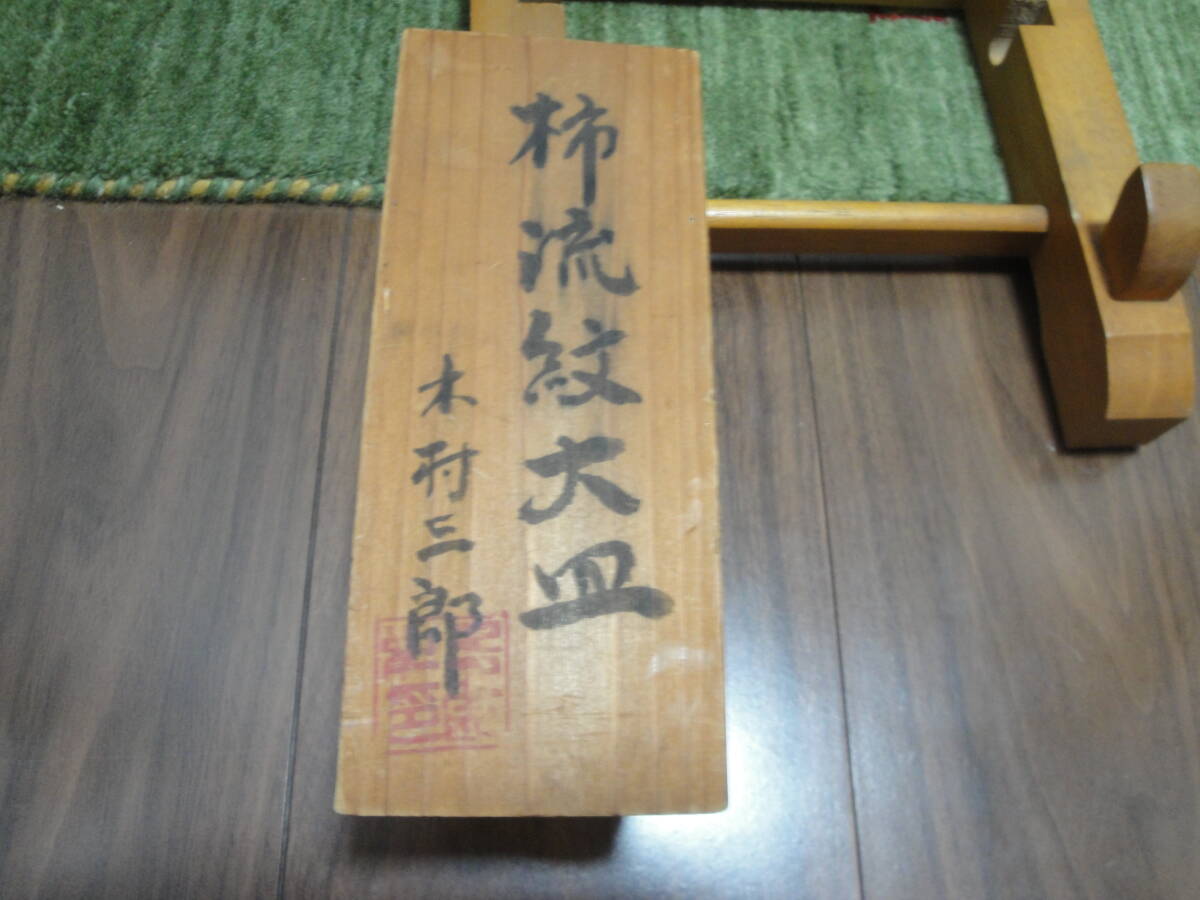 柿流紋大皿
木村三郎